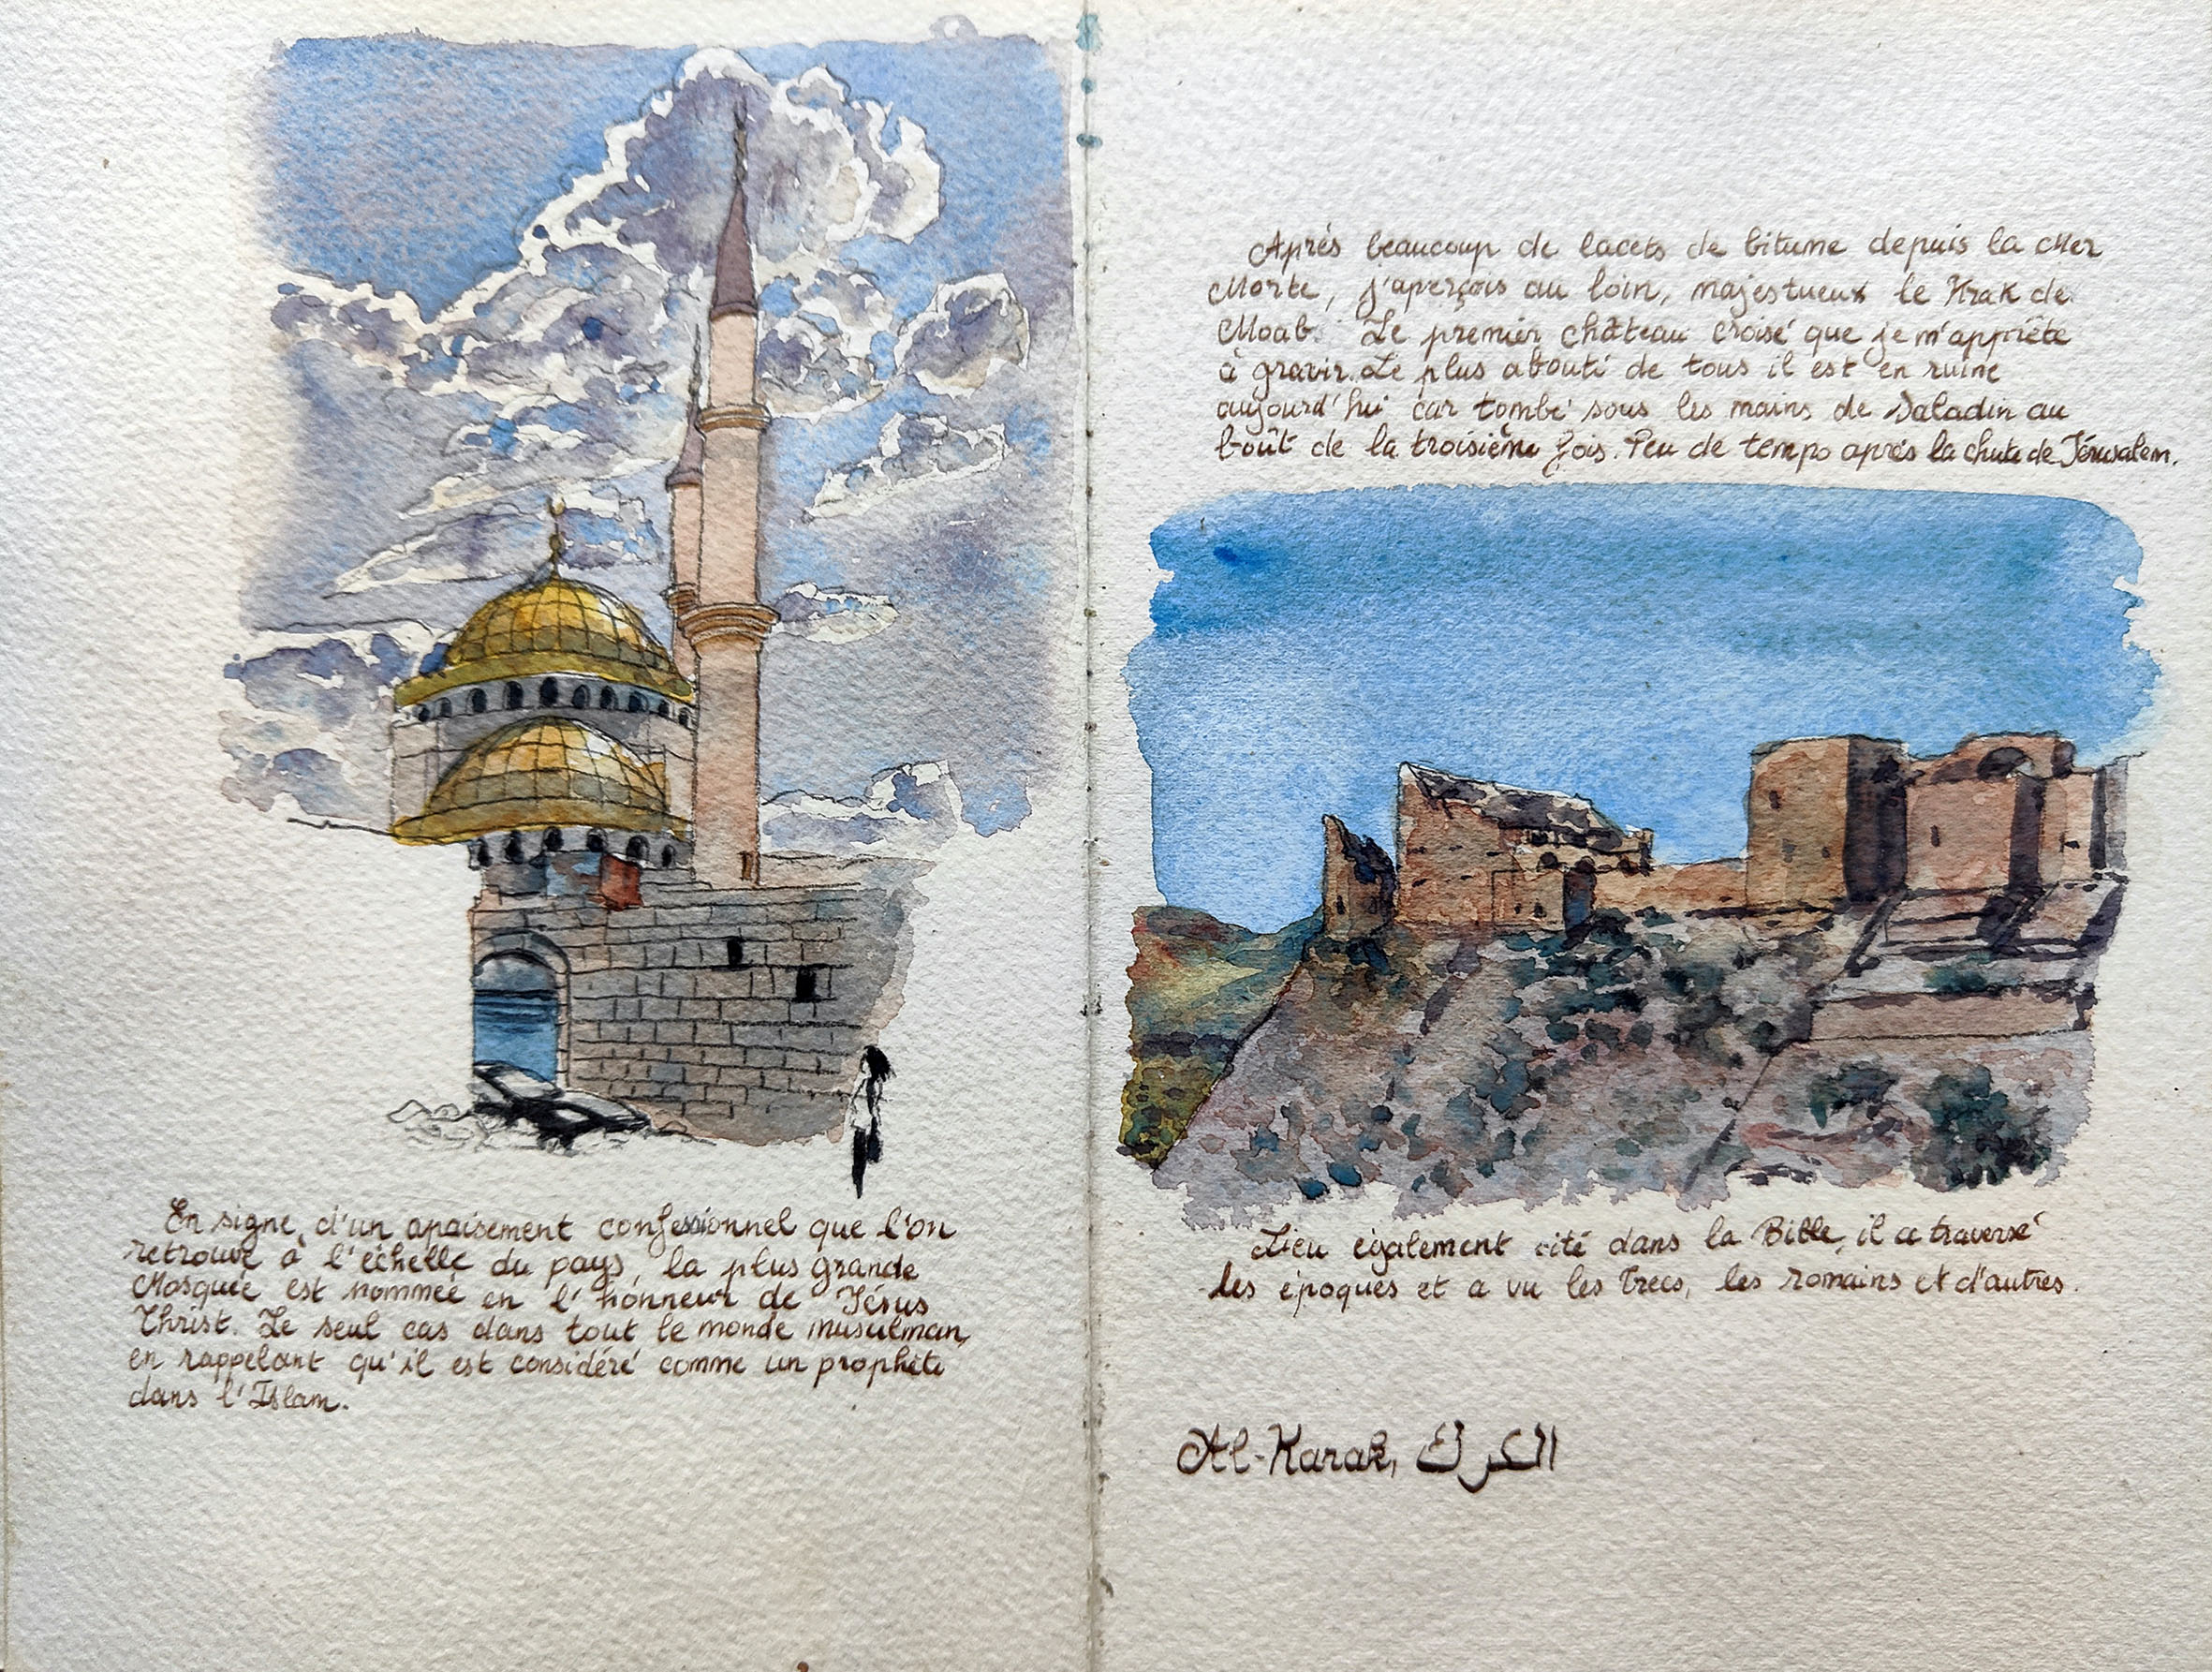 En signe d'un apaisement confessionnel que l'on
retrouve à l'échelle du pays, la plus grande
Mosquée est nommée en l'honneur de Jésus
Christ. Le seul cas dans tout le monde musulman,
en rappelant qu'il est considéré comme un prophète
dans l'Islam.
Après beaucoup de lacets de bitume depuis la Mer
Morte, j'aperçois au loin, majestueux le Krak de
Moab. Le premier château croisé que je m'apprête
à gravir. Le plus abouti de tous il est en ruine
aujourd'hui car tombé sous les mains de Saladin au
bout de la troisième fois. Peu de temps après la chute de Jérusalem.
Lieu également cité dans la Bible, il a traversé
les époques et a vu les Grecs, les romains et d'autres.
Al-Karak, الكرك